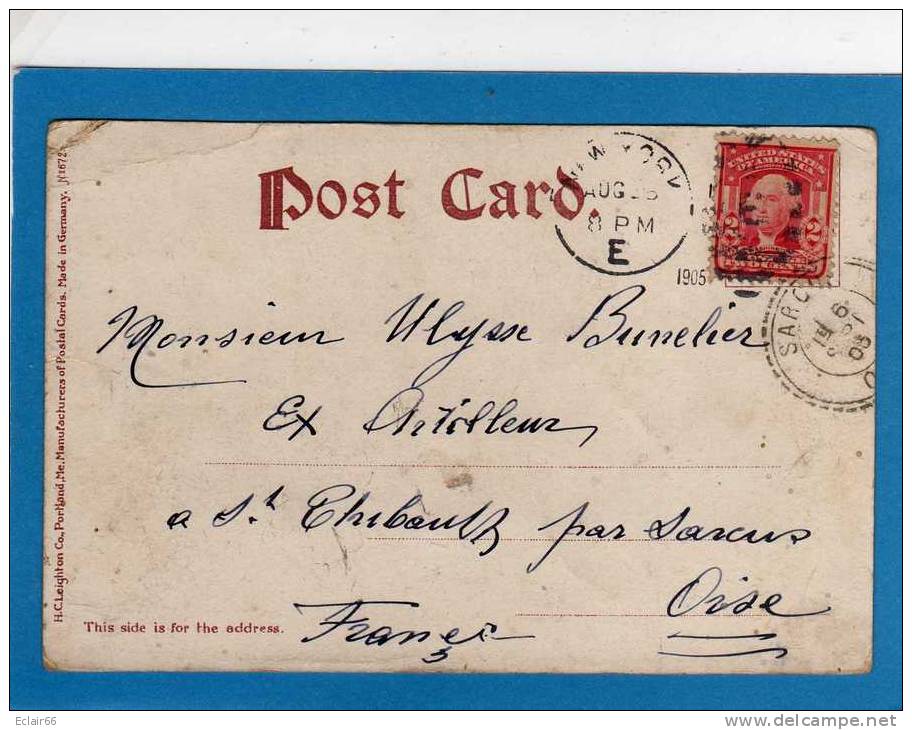 H.C. Leighton Co., Portland, Me. Manufacturers of Postal Cards. Made in Germany. N1672
Post Card.
NEW YORK
AUG
8 PM
E
1905
UNITED STATES
OF AMERICA
2 2
SARC
Monsieur Ulysse Bunelier
Ex Artilleur
a St. Thibault par Sarcus
Oise
France
This side is for the address.
Eclair66
www.delcampe.net